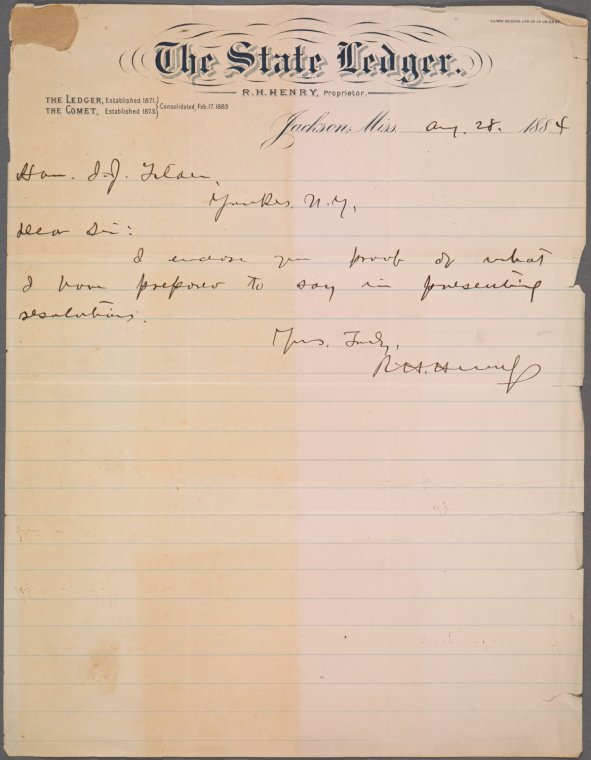 The State Ledger.
R. H. HENRY, Proprietor.
THE LEDGER, Established 1871.
THE COMET, Established 1873.
Consolidated, Feb. 17. 1883
Jackson, Miss. Aug. 28. 1884
Hon. S. J. Tilden,
Yonkers. N. Y.
Dear Sir:
I enclose you proof of what
I have prepared to say in presenting
resolutions.
Yours. Truly,
R. H. Henry